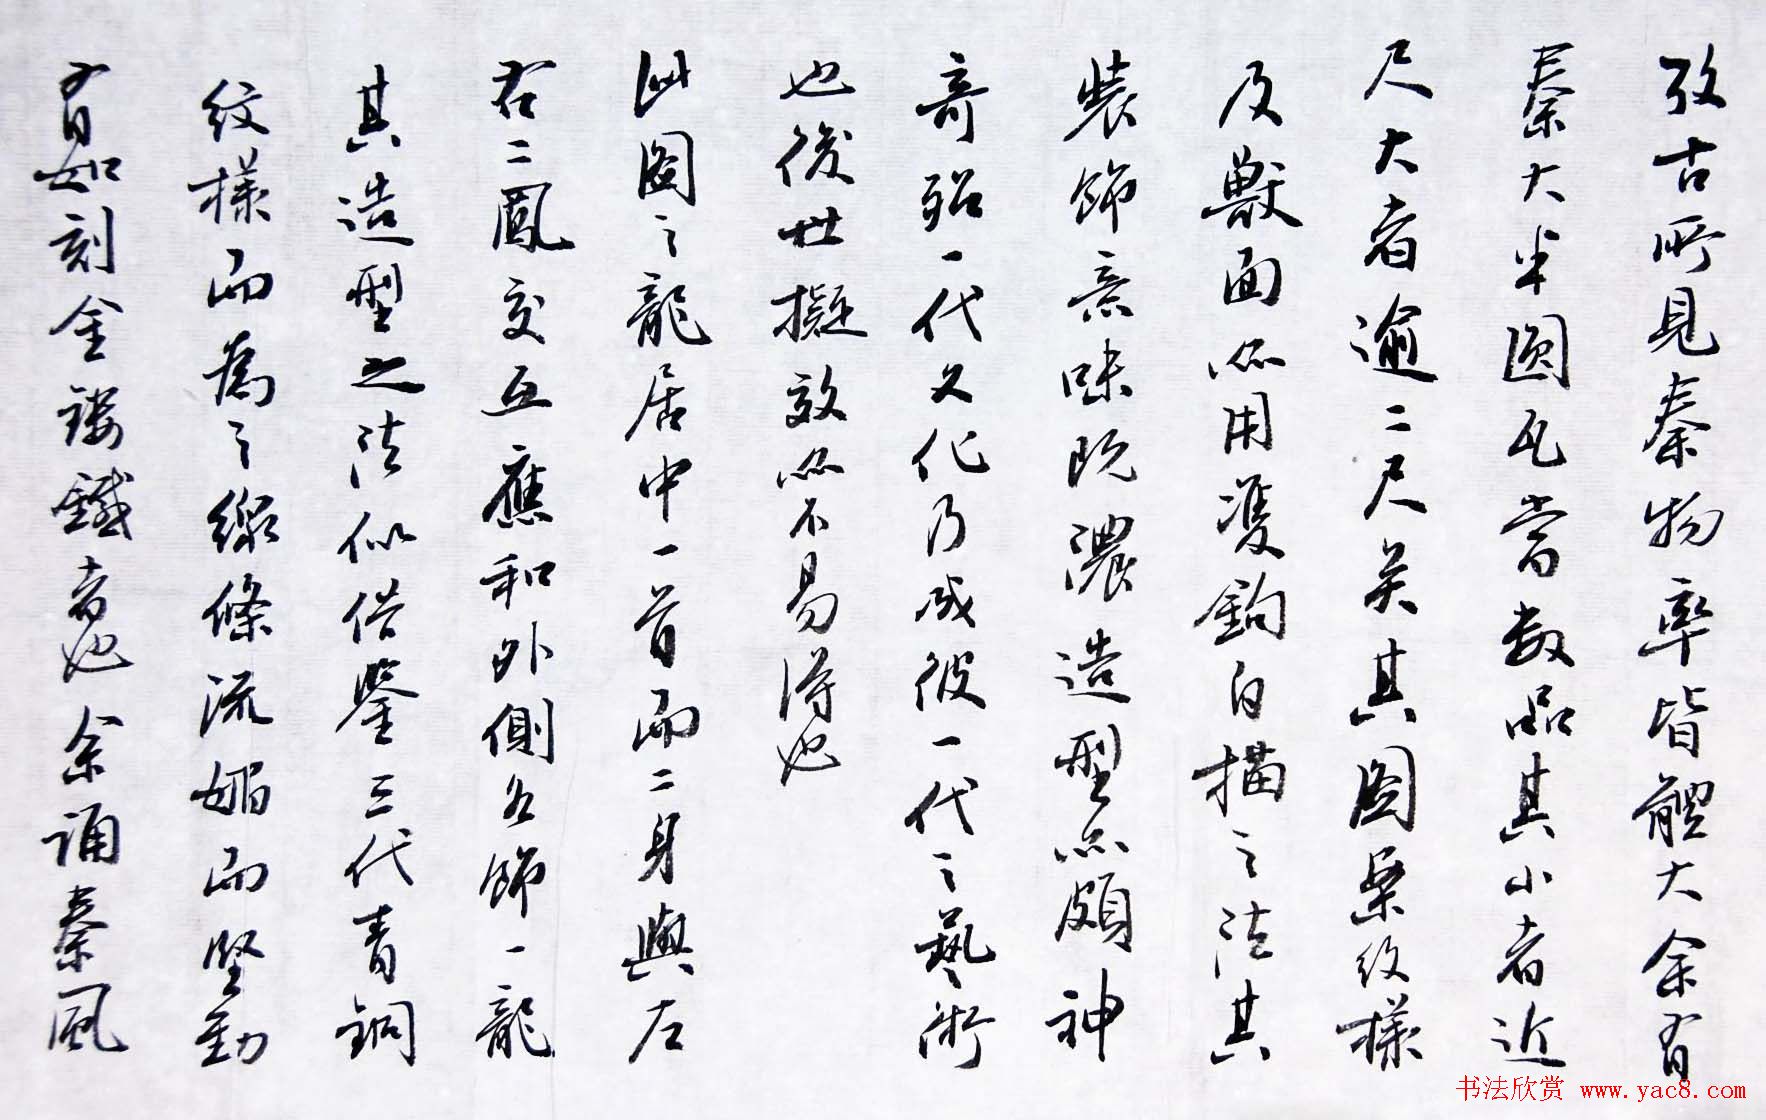 攷古所見秦物率皆體大余有
秦大半圓瓦當數品其小者近
尺大者逾二尺矣其圖案紋樣
及獸面亦用雙鉤白描之法其
裝飾意味既濃造型亦頗神
奇殆一代文化乃成彼一代之藝術
也後世擬效亦不易得也
此圖之龍居中一首而二身與左
右二鳳交互應和外側各飾一龍
其造型之法似借鑒三代青銅
紋樣而為之線條流媚而堅勁
有如刻金鏤鐵者也余誦秦風
书法欣赏 www.yac8.com